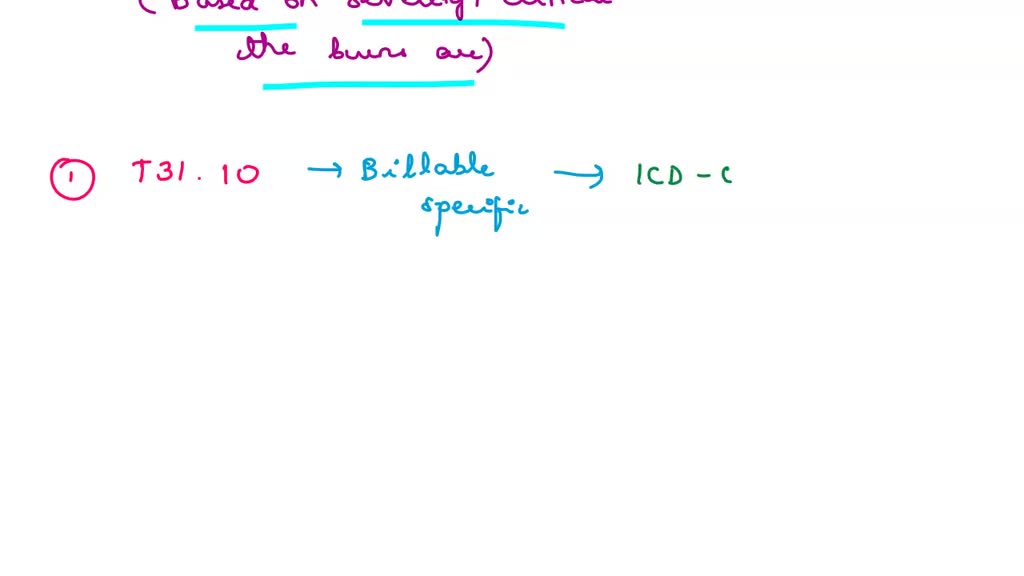 (Based on severity,
the burns are)
1 T31.10 → Billable → ICD - C
specific